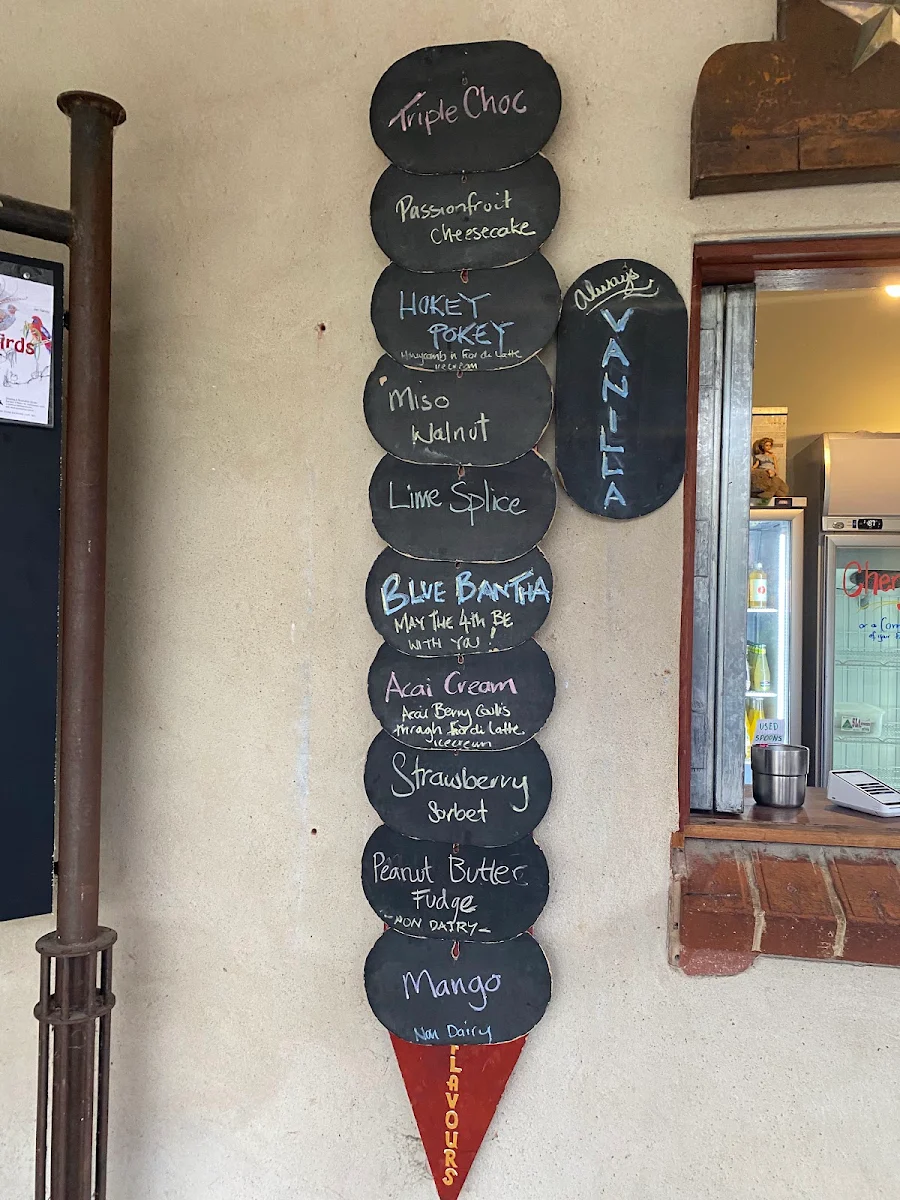 Triple Choc
Passionfruit
Cheesecake
HOKEY
POKEY
Honeycomb in Fior di Latte
icecream
Always
VANILLA
Miso
Walnut
Lime Splice
BLUE BANTHA
MAY THE 4th BE
WITH YOU!
Acai Cream
Acai Berry Coulis
through Fior di Latte
icecream
Strawberry
Sorbet
Peanut Butter
Fudge
-NON DAIRY-
Mango
Non Dairy
FLAVOURS
irds
Cher
or a
USED
SPOONS